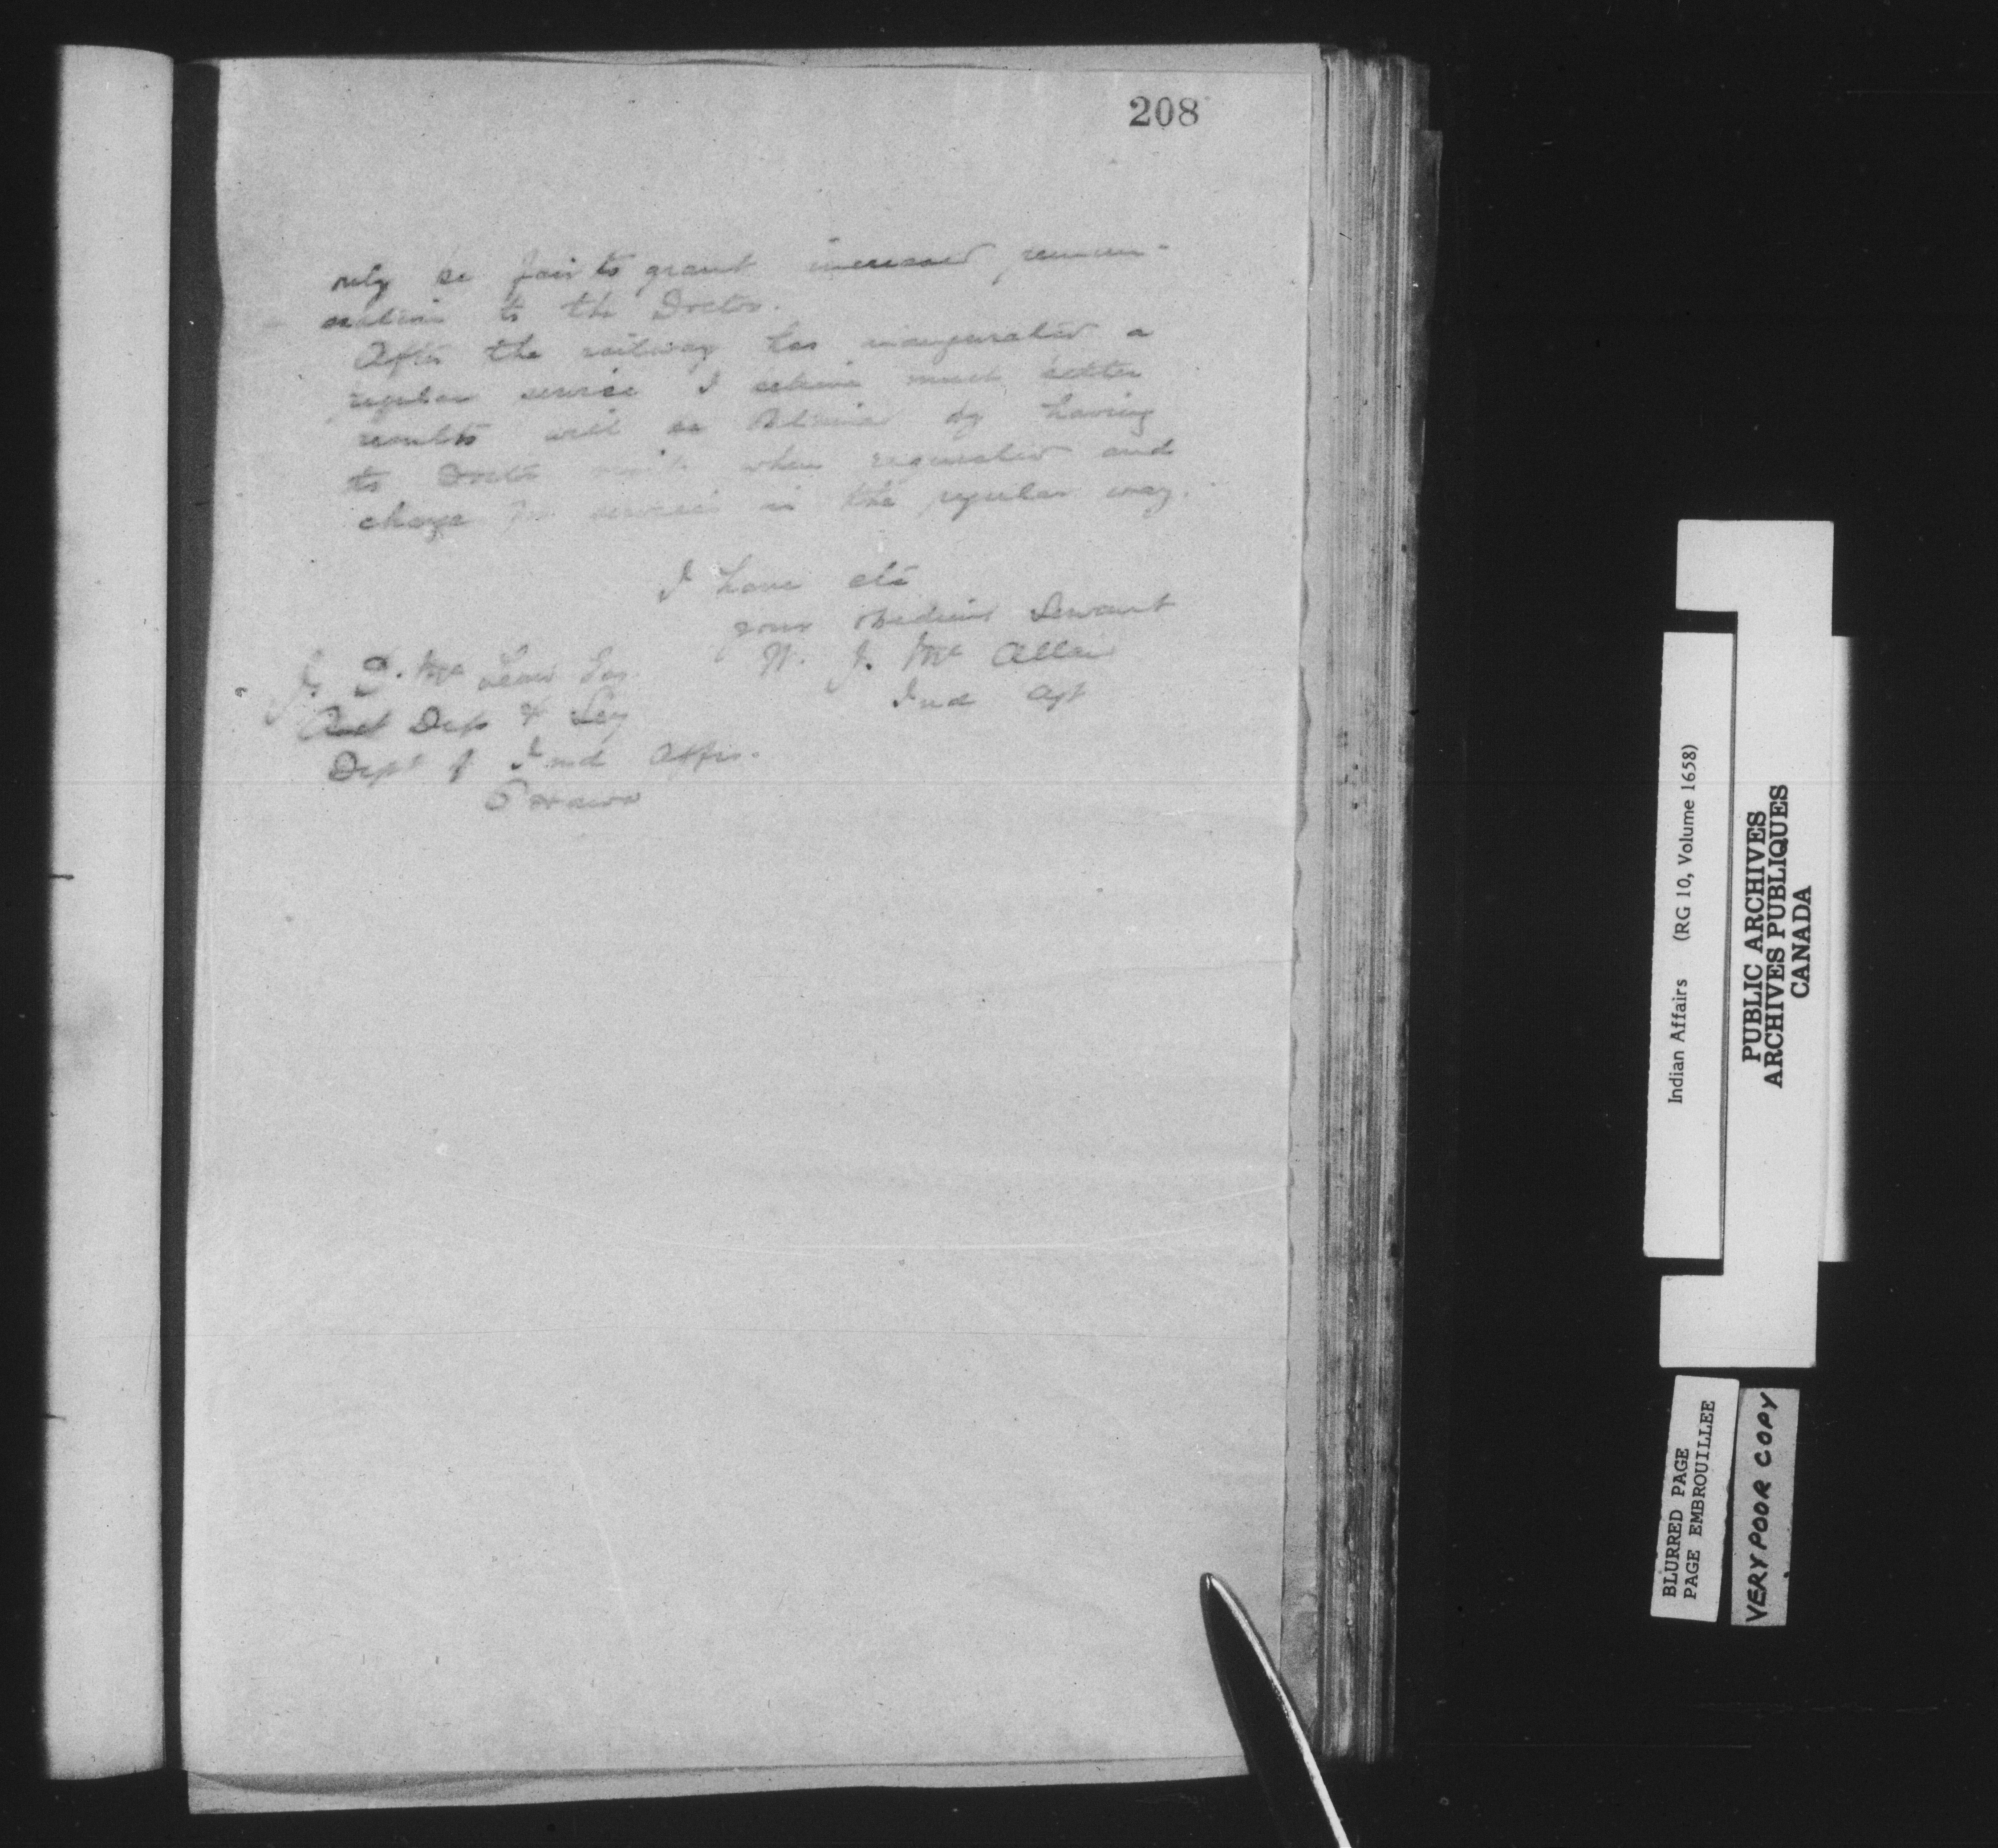 208
only be fair to grant increased remun-
eration to the Doctor.
After the railway has inaugurated a
regular service I believe much better
results will be obtained by having
to Doctor visit when requested and
charge for services in the regular way.
I have etc
your obedient Servant
W. J. McAllan
Ind Agt
J. D. McLean Esq.
Dep & Secy
Dept of Ind Affrs.
Ottawa
Indian Affairs (RG 10, Volume 1658)
PUBLIC ARCHIVES
ARCHIVES PUBLIQUES
CANADA
BLURRED PAGE
PAGE EMBROUILLEE
VERY POOR COPY